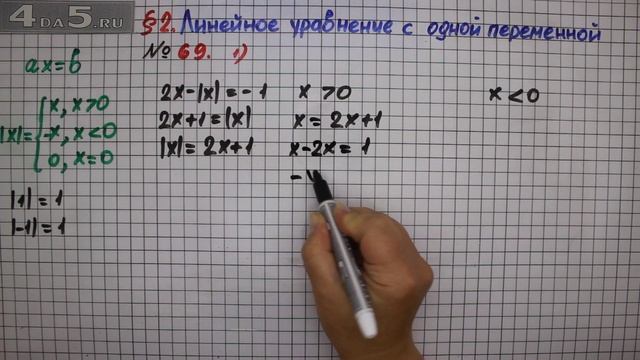 4DA5.RU
§2. Линейное уравнение с одной переменной
№ 69. 1)
ax=b
|x|= x, x>0
-x, x<0
0, x=0
|1|=1
|-1|=1
2x-|x|=-1
2x+1=|x|
|x|=2x+1
x>0
x=2x+1
x-2x=1
x<0